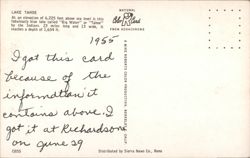 LAKE TAHOE
At an elevation of 6,225 feet above sea level is this
fabulously blue lake called "Big Water" or "Tahoe"
by the Indians. 23 miles long and 13 wide, it
reaches a depth of 1,659 ft.
NATIONAL
Color Card
FROM KODACHROME
1955
I got this card
because of the
information it
contains above. I
got it at Richardsons
on June 29
Distributed by Sierra News Co., Reno